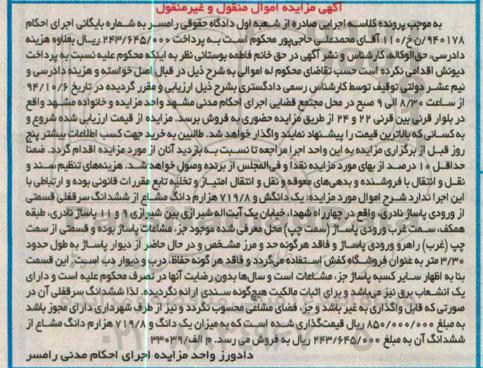 آگهی مزایده اموال منقول و غیرمنقول
به موجب پرونده کلاسه اجرایی صادره از شعبه اول دادگاه حقوقی رامسر به شماره بایگانی اجرای احکام
۹۴۰۱۷۸/ن ح/۱۱۰ آقای محمدعلی حاجی‌پور محکوم است به پرداخت ۲۴۳/۶۴۵/۰۰۰ ریال بعلاوه هزینه
دادرسی، حق‌الوکاله، کارشناس و نشر آگهی در حق خانم فاطمه بوستانی نظر به اینکه محکوم علیه نسبت به پرداخت
دیونش اقدامی نکرده است حسب تقاضای محکوم له اموالی به شرح ذیل در قبال اصل خواسته و هزینه دادرسی و
نیم عشر دولتی توقیف توسط کارشناس رسمی دادگستری بشرح ذیل ارزیابی و مقرر گردیده در تاریخ ۹۴/۱۰/۶
از ساعت ۸/۳۰ الی ۹ صبح در محل مجتمع قضایی اجرای احکام مدنی مشهد واحد مزایده و خانواده مشهد واقع
در بلوار قرنی بین قرنی ۲۲ و ۲۴ از طریق مزایده حضوری به فروش برسد. مزایده از قیمت ارزیابی شده شروع و
به کسانی که بالاترین قیمت را پیشنهاد نمایند واگذار خواهد شد. طالبین به خرید جهت کسب اطلاعات بیشتر پنج
روز قبل از برگزاری مزایده به این واحد اجرا مراجعه تا نسبت به بازدید آنان از مورد مزایده اقدام گردد. ضمنا
حداقل ۱۰ درصد از بهای مورد مزایده نقدا و فی‌المجلس از برنده وصول خواهد شد. هزینه‌های تنظیم سند و
نقل و انتقال با فروشنده و بدهی‌های معوقه و نقل و انتقال امتیاز و تخلیه تابع مقررات قانونی بوده و ارتباطی با
این اجرا ندارد شرح اموال مورد مزایده: یک دانگ و ۷۱۹/۸ هزارم دانگ مشاع از ششدانگ سرقفلی قسمتی
از ورودی پاساژ نادری، واقع در چهارراه شهدا، خیابان یک آیت‌اله شیرازی بین شیرازی ۹ و ۱۱ پاساژ نادری، طبقه
همکف، سمت غرب ورودی پاساژ (سمت چپ) محل معرفی شده موجود جز، مشاعات پاساژ بوده و قسمتی از سمت
چپ (غرب) راهرو ورودی پاساژ و فاقد هرگونه حد و مرز مشخص و در حال حاضر از دیوار پاساژ به طول حدود
۳/۳۰ متر به عنوان فروشگاه کفش استفاده می‌گردد و فاقد هر گونه حفاظ، درب و دیوار دب است. این قسمت
بنا به اظهار سایر کسبه پاساژ جز، مشاعات است و سال‌ها بدون رضایت آنها در تصرف محکوم علیه است و دارای
یک انشعاب برق نیز می‌باشد و برای اثبات مالکیت هیچگونه سندی ارائه نگردیده. لذا ششدانگ سرقفلی آن در
صورتی که قابل واگذاری به غیر باشد و جز، فضای مشاعی محسوب نگردد و نیز از طرف شهرداری دارای مجوز باشد
به مبلغ ۸۵۰/۰۰۰/۰۰۰ ریال قیمت‌گذاری شده است که به میزان یک دانگ و ۷۱۹/۸ هزارم دانگ مشاع از
ششدانگ آن به مبلغ ۲۴۳/۶۴۵/۰۰۰ ریال به فروش می رسد. م الف/۳۳۰۳۹
دادورز واحد مزایده اجرای احکام مدنی رامسر